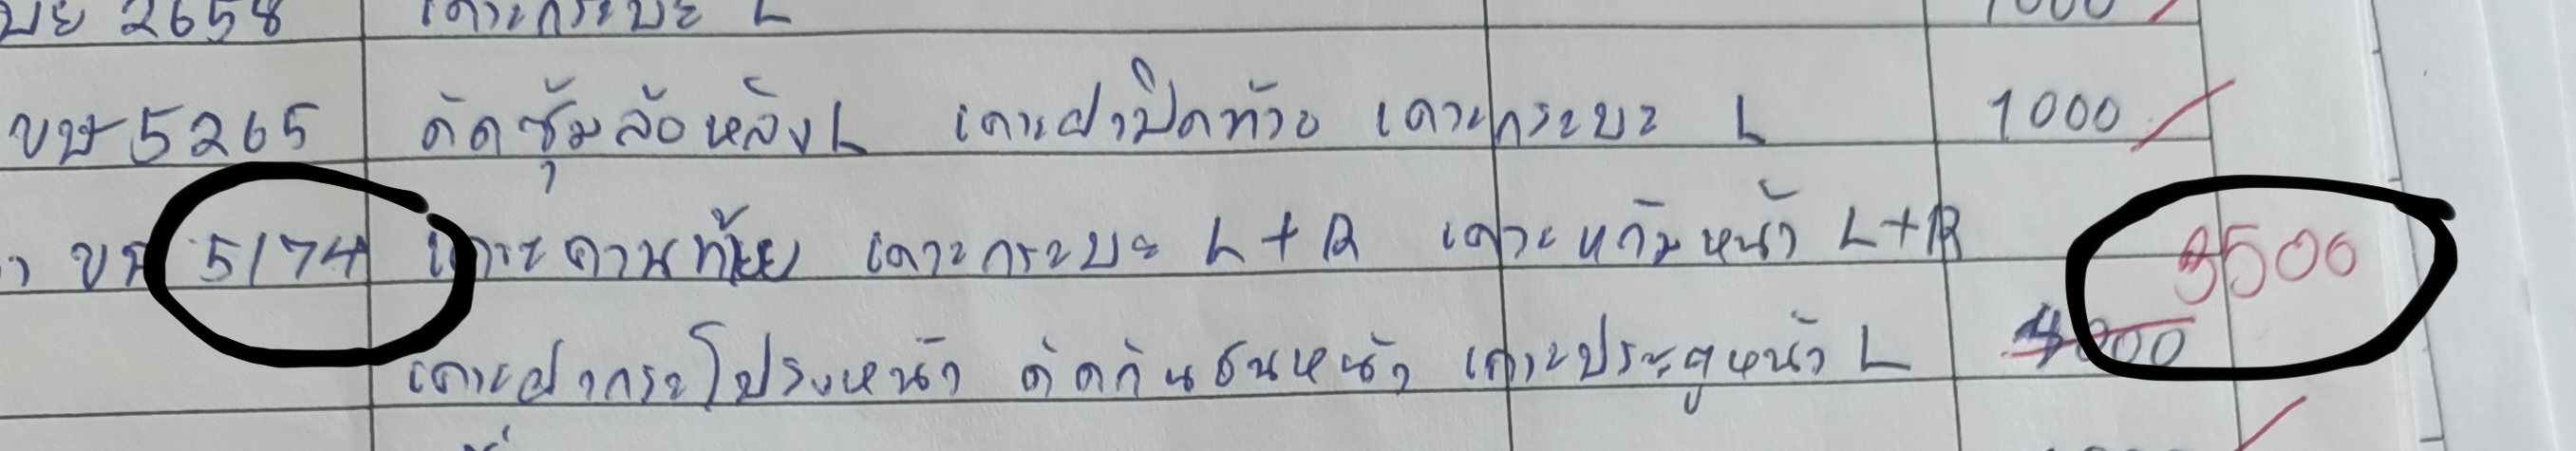 บย 2658 เคาะกระบะ L 1000
ขษ 5265 ดัดซุ้มล้อหลัง L เคาะฝาปิดท้าย เคาะกระบะ L 1000
5174 เคาะคานท้าย เคาะกระบะ L+R เคาะแก้มหน้า L+R 3500
เคาะฝากระโปรงหน้า ดัดกันชนหน้า เคาะประตูหน้า L 4000